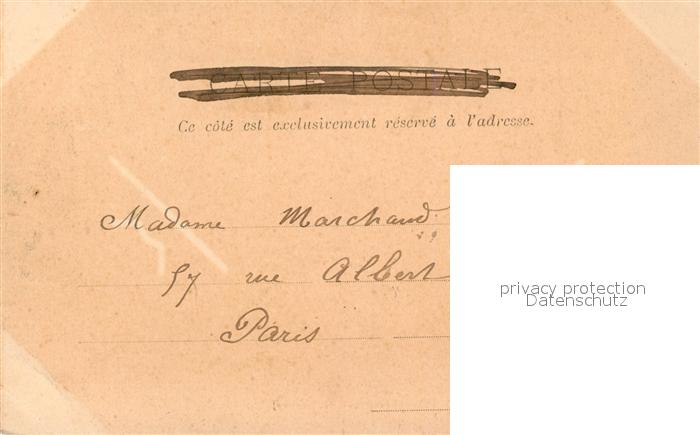 CARTE POSTALE
Ce côté est exclusivement réservé à l'adresse.
Madame Marchand
57 rue Albert
Paris
privacy protection
Datenschutz